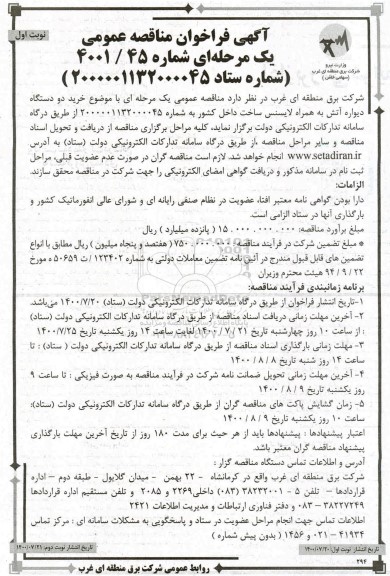 نوبت اول
وزارت نیرو
شرکت برق منطقه ای غرب
(سهامی خاص)
آگهی فراخوان مناقصه عمومی
یک مرحله‌ای شماره ۴۵ / ۴۰۰۱
(شماره ستاد ۲۰۰۰۰۰۱۱۳۲۰۰۰۰۴۵)
شرکت برق منطقه ای غرب در نظر دارد مناقصه عمومی یک مرحله ای با موضوع خرید دو دستگاه
دیواره آتش به همراه لایسنس ساخت داخل کشور به شماره ۲۰۰۰۰۰۱۱۳۲۰۰۰۰۴۵ از طریق درگاه
سامانه تدارکات الکترونیکی دولت برگزار نماید، کلیه مراحل برگزاری مناقصه از دریافت و تحویل اسناد
مناقصه و سایر مراحل مناقصه ،از طریق درگاه سامانه تدارکات الکترونیکی دولت (ستاد) به آدرس
www.setadiran.ir انجام خواهد شد. لازم است مناقصه گران در صورت عدم عضویت قبلی، مراحل
ثبت نام در سامانه مذکور و دریافت گواهی امضای الکترونیکی را جهت شرکت در مناقصه محقق سازند.
الزامات:
دارا بودن گواهی نامه معتبر افتا، عضویت در نظام صنفی رایانه ای و شورای عالی انفورماتیک کشور و
بارگذاری آنها در ستاد الزامی است.
مبلغ برآورد مناقصه: ۱۵.۰۰۰.۰۰۰.۰۰۰ ( پانزده میلیارد ) ریال
* مبلغ تضمین شرکت در فرآیند مناقصه: ۷۵۰.۰۰۰.۰۰۰ ( هفتصد و پنجاه میلیون ) ریال مطابق با انواع
تضمین های قابل قبول مندرج در آئین نامه تضمین معاملات دولتی به شماره ۱۲۳۴۰۲/ ت ۵۰۶۵۹ ه مورخ
۲۲ / ۹ / ۹۴ هیئت محترم وزیران
برنامه زمانبندی فرآیند مناقصه:
۱-تاریخ انتشار فراخوان از طریق درگاه سامانه تدارکات الکترونیکی دولت (ستاد) ۱۴۰۰/۷/۲۰ می‌باشد.
۲- آخرین مهلت زمانی دریافت اسناد مناقصه از طریق درگاه سامانه تدارکات الکترونیکی دولت (ستاد)
: از ساعت ۱۰ روز چهارشنبه تاریخ ۲۱ / ۷ / ۱۴۰۰ لغایت ساعت ۱۴ روز یکشنبه تاریخ ۱۴۰۰/۷/۲۵
۳- مهلت زمانی بارگذاری اسناد مناقصه از طریق درگاه سامانه تدارکات الکترونیکی دولت ( ستاد) : تا
ساعت ۱۴ روز شنبه تاریخ ۸ / ۸ / ۱۴۰۰
۴- آخرین مهلت زمانی تحویل ضمانت نامه شرکت در فرآیند مناقصه به صورت فیزیکی : تا ساعت ۹
روز یکشنبه تاریخ ۹ / ۸ / ۱۴۰۰
۵- زمان گشایش پاکت های مناقصه گران از طریق درگاه سامانه تدارکات الکترونیکی دولت (ستاد):
ساعت ۱۰ روز یکشنبه تاریخ ۹ / ۸ / ۱۴۰۰
اعتبار پیشنهادها : پیشنهادها باید از هر حیث برای مدت ۱۸۰ روز از تاریخ آخرین مهلت بارگذاری
پیشنهاد مناقصه گران معتبر باشد.
آدرس و اطلاعات تماس دستگاه مناقصه گزار :
شرکت برق منطقه ای غرب واقع در کرمانشاه - ۲۲ بهمن - میدان گلایول - طبقه دوم – اداره
قراردادها - تلفن ۵ - ۳۸۲۳۲۰۰۱ (۰۸۳) داخلی۲۲۶۹ و ۲۰۸۵ و تلفن مستقیم اداره قراردادها
۳۸۲۲۷۲۴۹ – ۰۸۳ و دفتر فناوری ارتباطات و مدیریت اطلاعات ۲۴۲۱
اطلاعات تماس جهت انجام مراحل عضویت در ستاد و پاسخگویی به مشکلات سامانه ای : مرکز تماس
۴۱۹۳۴ - ۰۲۱ و ۱۴۵۶ ( بدون پیش شماره )
تاریخ انتشار نوبت اول: ۱۴۰۰/۰۷/۲۰
تاریخ انتشار نوبت دوم: ۱۴۰۰/۰۷/۲۱
۲۹۴
روابط عمومی شرکت برق منطقه ای غرب